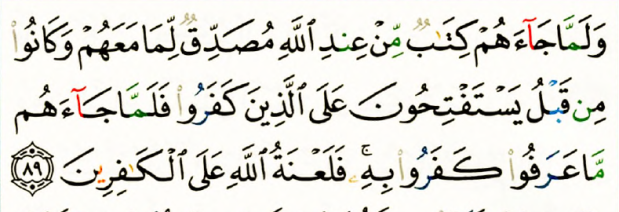 وَلَمَّا جَآءَهُمْ كِتَـٰبٌ مِّنْ عِندِ ٱللَّهِ مُصَدِّقٌ لِّمَا مَعَهُمْ وَكَانُوا۟
مِن قَبْلُ يَسْتَفْتِحُونَ عَلَى ٱلَّذِينَ كَفَرُوا۟ فَلَمَّا جَآءَهُم
مَّا عَرَفُوا۟ كَفَرُوا۟ بِهِۦ ۚ فَلَعْنَةُ ٱللَّهِ عَلَى ٱلْكَـٰفِرِينَ ٨٩